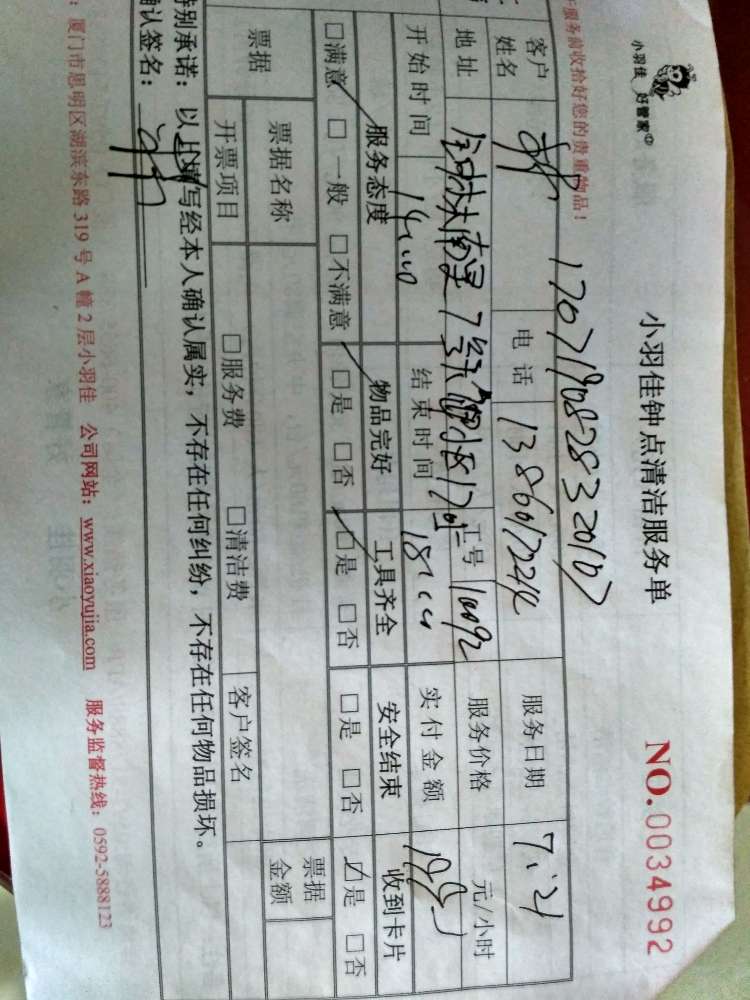 小羽佳 好管家
小羽佳钟点清洁服务单
NO.0034992
服务前收拾好您的贵重物品！
客户姓名 电话 服务日期 7.21
地址 工号 10092 服务价格 元/小时
开始时间 14:00 结束时间 18:00 实付金额
服务态度 物品完好 工具齐全 安全结束 收到卡片
□满意 □一般 □不满意 □是 □否 □是 □否 □是 □否 □是 □否
票据 票据名称 票据金额
开票项目 □服务费 □清洁费 客户签名
特别承诺：以上填写经本人确认属实，不存在任何纠纷，不存在任何物品损坏。
确认签名：
：厦门市思明区湖滨东路 319 号 A 幢 2 层小羽佳 公司网站：www.xiaoyujia.com 服务监督热线：0592-5888123